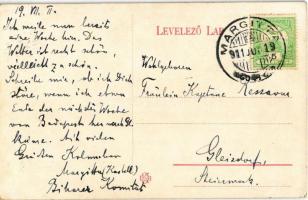 19. VII. 11.
Ich weile nun bereits
eine Woche hier. Das
Wetter ist recht schön,
vielleicht zu schön.
Schreibe mir, ob ich Dich
störe, wenn ich etwa
Ende der nächsten Woche
von Budapest
Mit vielen
Grüßen Koloman
Margitta (Kastell)
Biharer Komitat
LEVELEZŐ LAP
MARGITTA
911 JUL 19
Wohlgeboren
Fräulein
Gleisdorf,
Steiermark